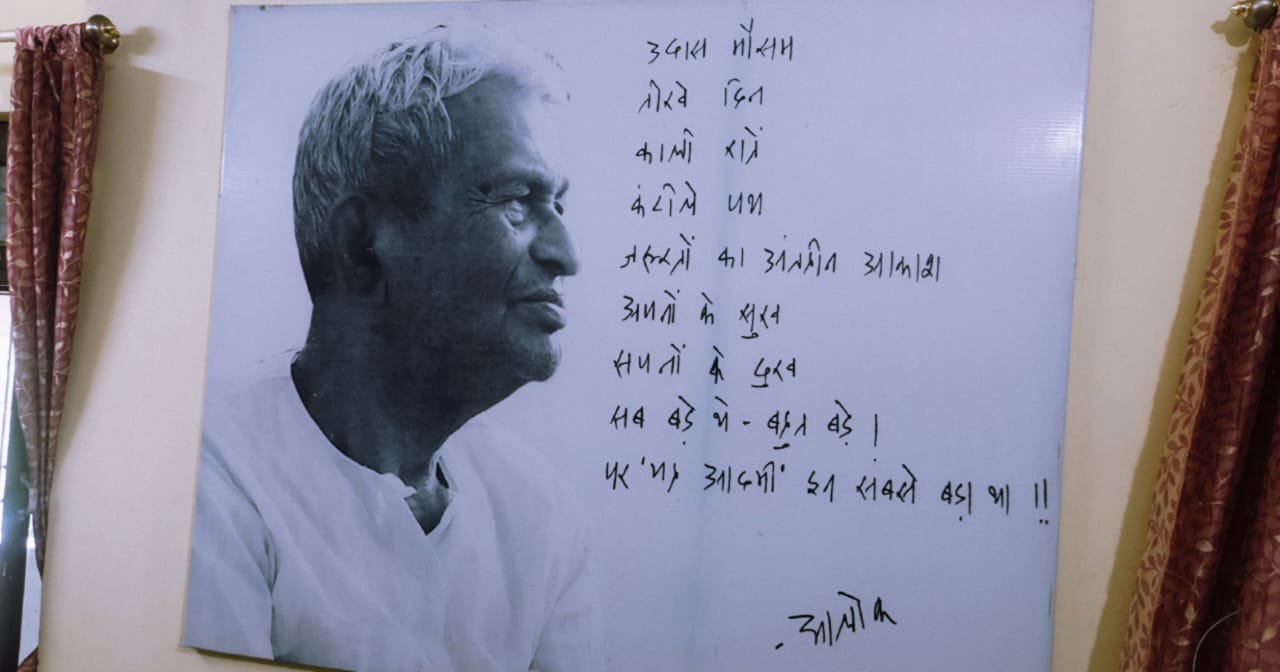 उदास मौसम
तीखे दिन
काली रातें
कंटीले पथ
नफ़रतों का अंतहीन आकाश
अपनों के सुख
सपनों के दुख
सब बड़े थे - बहुत बड़े !
पर 'यह आदमी' इन सबसे बड़ा था !!
आलोक